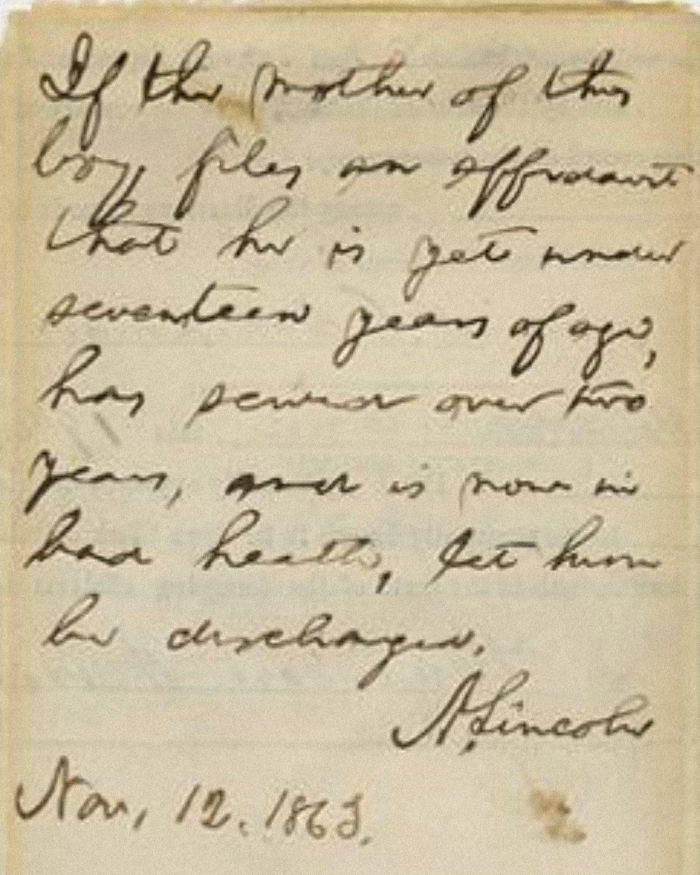 If the mother of this
boy, files an affidavit
that he is yet under
seventeen years of age,
has served over two
years, and is now in
bad health, let him
be discharged.
A. Lincoln
Nov. 12. 1863.